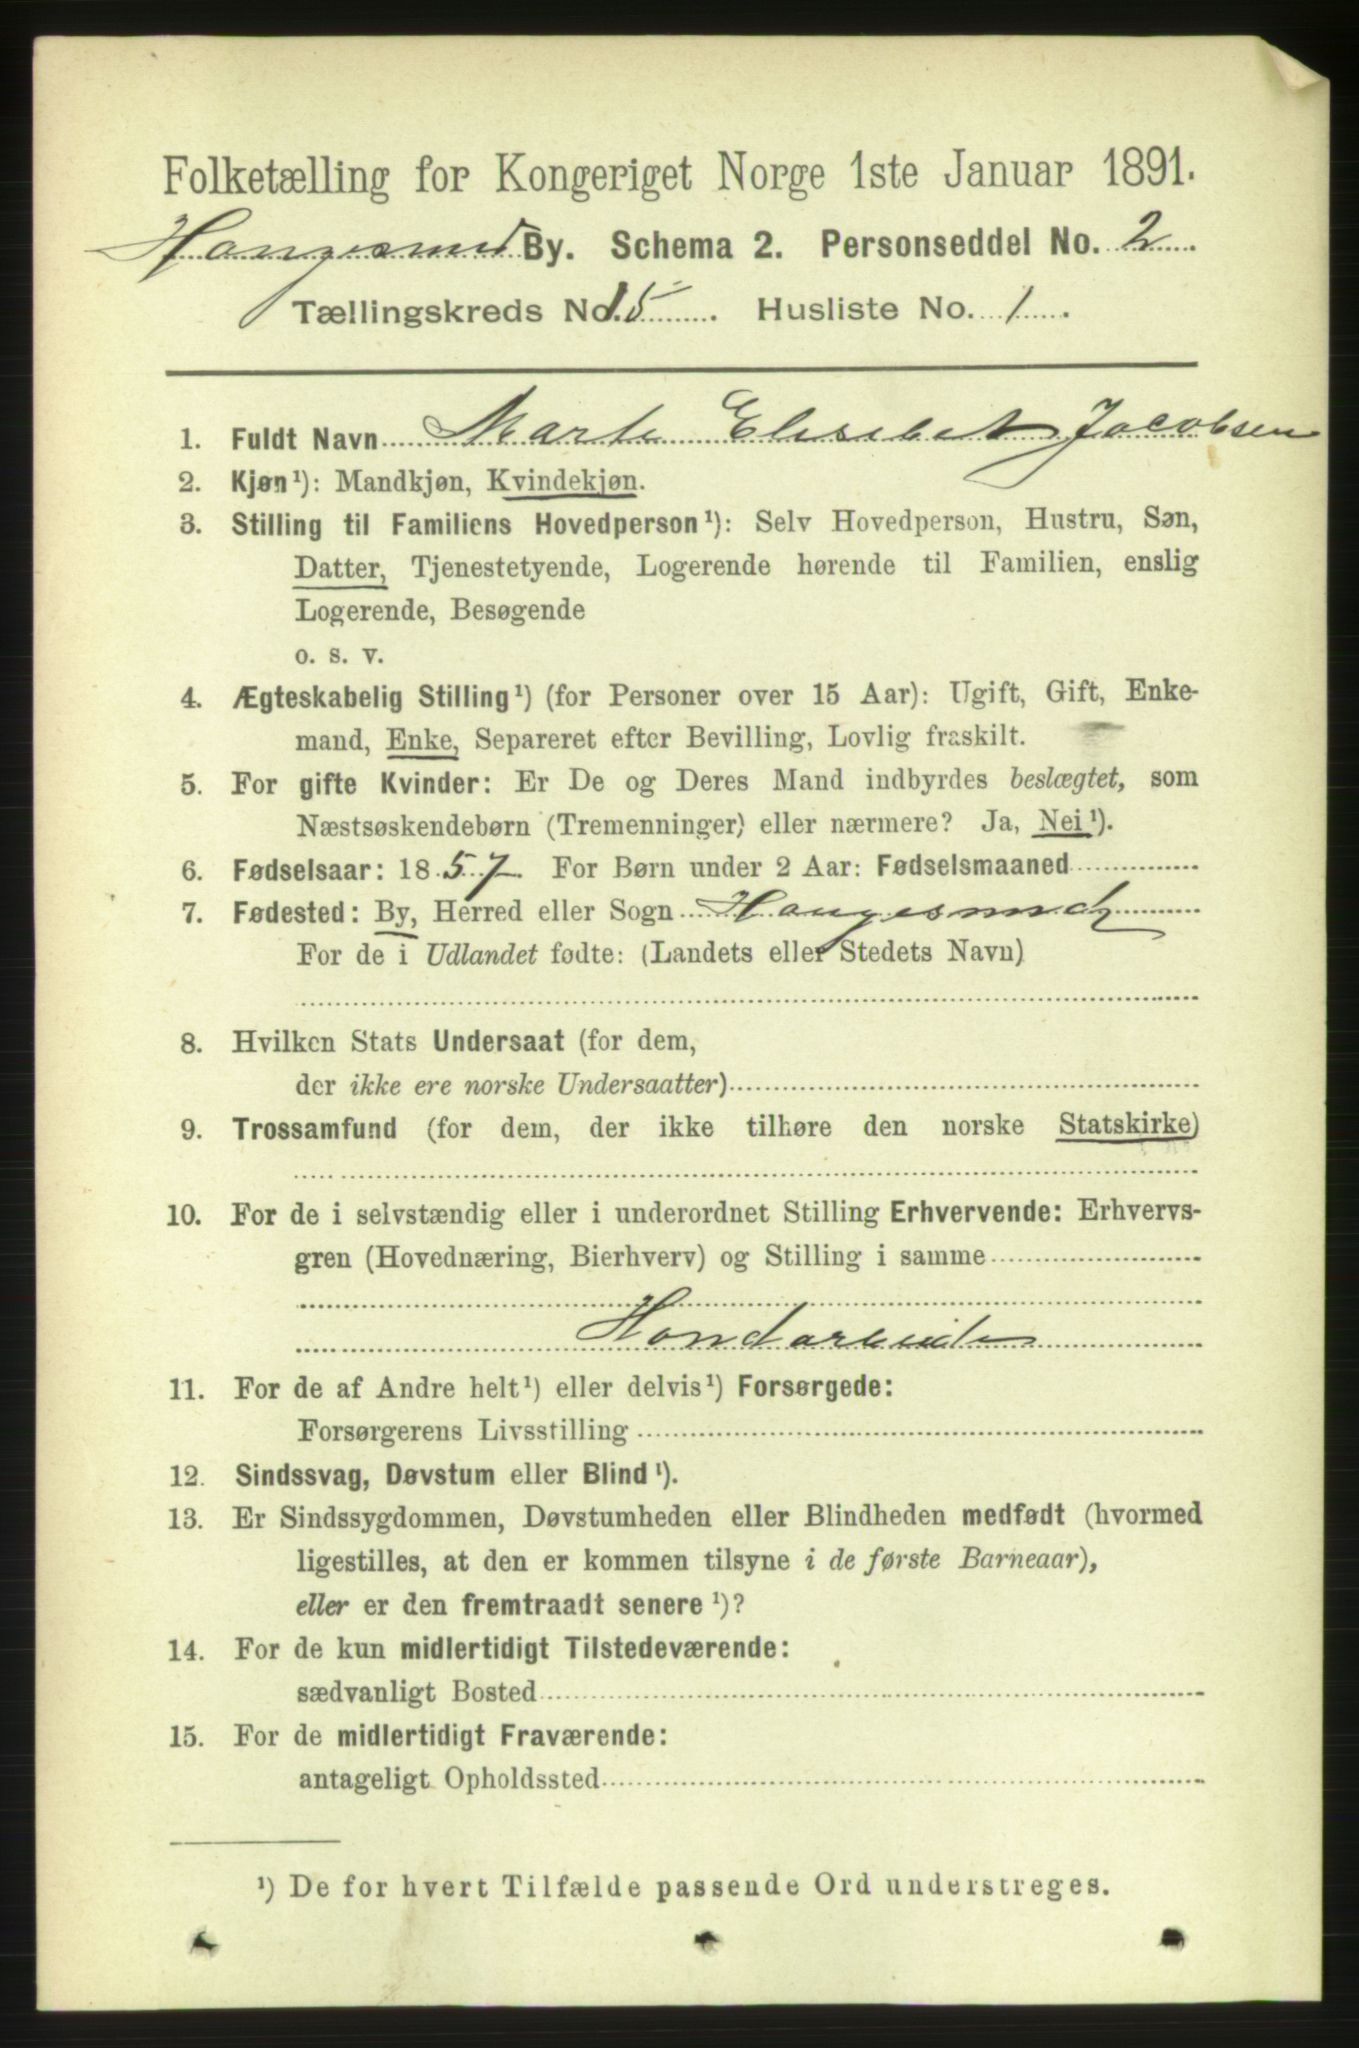 Folketælling for Kongeriget Norge 1ste Januar 1891.
Haugesund By. Schema 2. Personseddel No. 2
Tællingskreds No. 15 . Husliste No. 1 .
1. Fuldt Navn Marte Elisebet Jacobsen
2. Kjøn¹): Mandkjøn, Kvindekjøn.
3. Stilling til Familiens Hovedperson¹): Selv Hovedperson, Hustru, Søn,
Datter, Tjenestetyende, Logerende hørende til Familien, enslig
Logerende, Besøgende
o. s. v.
4. Ægteskabelig Stilling¹) (for Personer over 15 Aar): Ugift, Gift, Enke-
mand, Enke, Separeret efter Bevilling, Lovlig fraskilt.
5. For gifte Kvinder: Er De og Deres Mand indbyrdes beslægtet, som
Næstsøskendebørn (Tremenninger) eller nærmere? Ja, Nei¹).
6. Fødselsaar: 1857 For Børn under 2 Aar: Fødselsmaaned
7. Fødested: By, Herred eller Sogn Haugesund
For de i Udlandet fødte: (Landets eller Stedets Navn)
8. Hvilken Stats Undersaat (for dem,
der ikke ere norske Undersaatter)
9. Trossamfund (for dem, der ikke tilhøre den norske Statskirke)
10. For de i selvstændig eller i underordnet Stilling Erhvervende: Erhvervs-
gren (Hovednæring, Bierhverv) og Stilling i samme
Handarbeide
11. For de af Andre helt¹) eller delvis¹) Forsørgede:
Forsørgerens Livsstilling
12. Sindssvag, Døvstum eller Blind¹).
13. Er Sindssygdommen, Døvstumheden eller Blindheden medfødt (hvormed
ligestilles, at den er kommen tilsyne i de første Barneaar),
eller er den fremtraadt senere¹)?
14. For de kun midlertidigt Tilstedeværende:
sædvanligt Bosted
15. For de midlertidigt Fraværende:
antageligt Opholdssted
¹) De for hvert Tilfælde passende Ord understreges.